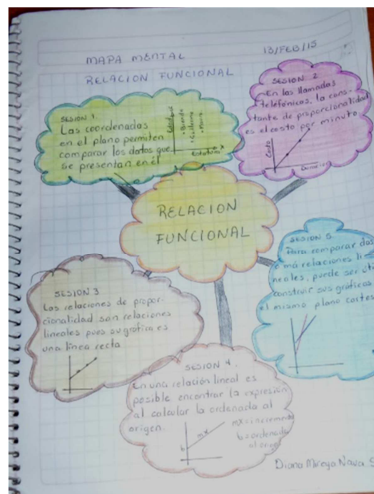 MAPA MENTAL
13/FEB/15
RELACION FUNCIONAL
SESION 1
Las coordenadas
en el plano permiten
comparar los datos que
se presentan en él
SESION 2
En las llamadas
telefónicas, la cons
tante de proporcionalidad
es el costo por minuto
Costo
RELACION
FUNCIONAL
SESION 3
Las relaciones de propor-
cionalidad son relaciones
lineales pues su gráfica es
una línea recta
SESION 4
En una relación lineal es
posible encontrar la expresión
al calcular la ordenada al
origen.
b= ordenada
al origen
SESION 5
Para comparar dos
o más relaciones li-
neales, puede ser úti
construir sus gráficas
el mismo plano cartes
Diana Mireya Nava S